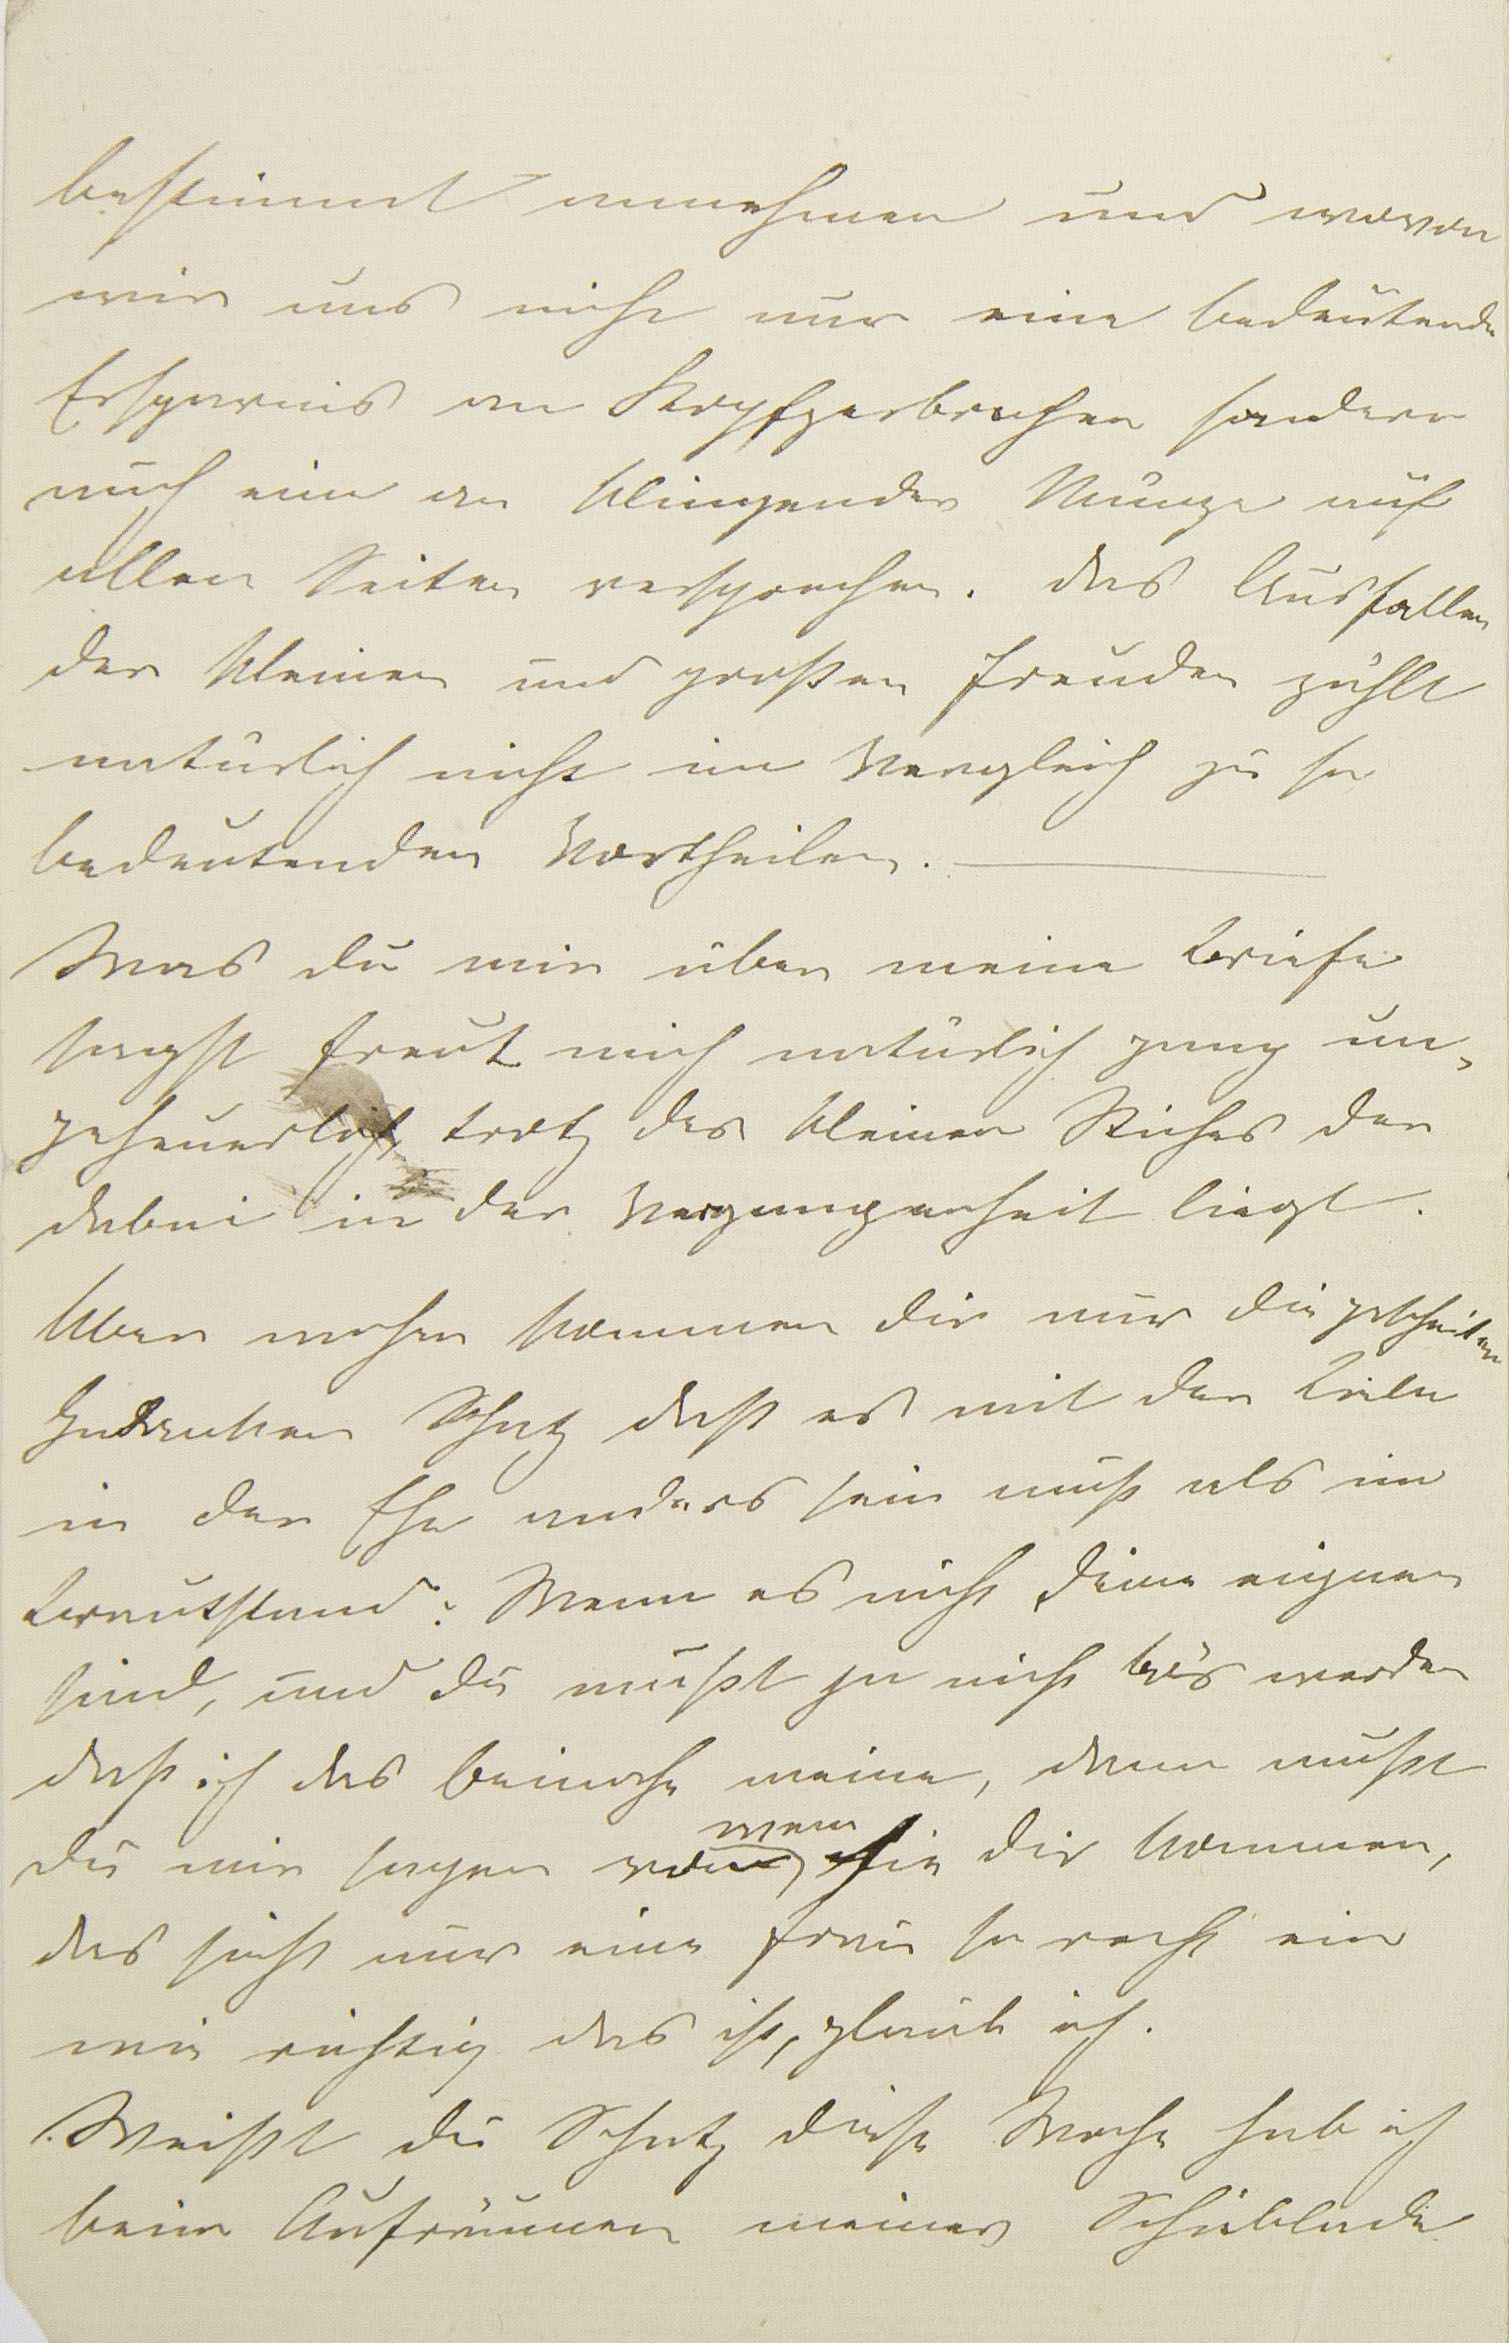 bestimmt annehmen und wovon
wir uns nicht nur eine bedeutende
Ersparnis an Kopfzerbrechen sondern
auch eine an klingender Münze auf
allen Seiten versprechen. das Ausfallen
der kleinen und großen Freuden zählt
natürlich nicht im Vergleich zu so
bedeutenden Vortheilen. —
Was du mir über meine Briefe
sagst freut mich natürlich ganz un-
geheuerlich, trotz des kleinen Stiches der
dabei in der Vergangenheit liegt.
Aber woher kommen dir nur die gescheiten
Gedanken Schatz daß es mit der Liebe
in der Ehe anders sein muß als im
Brautstand? Wenn es nicht deine eignen
sind, und du mußt ja nicht bös werden
daß ich das beinahe meine, dann mußt
du mir sagen von wem sie dir kommen,
das sieht nur eine Frau so recht ein
wie richtig das ist, glaub ich.
Weißt du Schatz diese Woche hab ich
beim Aufräumen meiner Schieblade